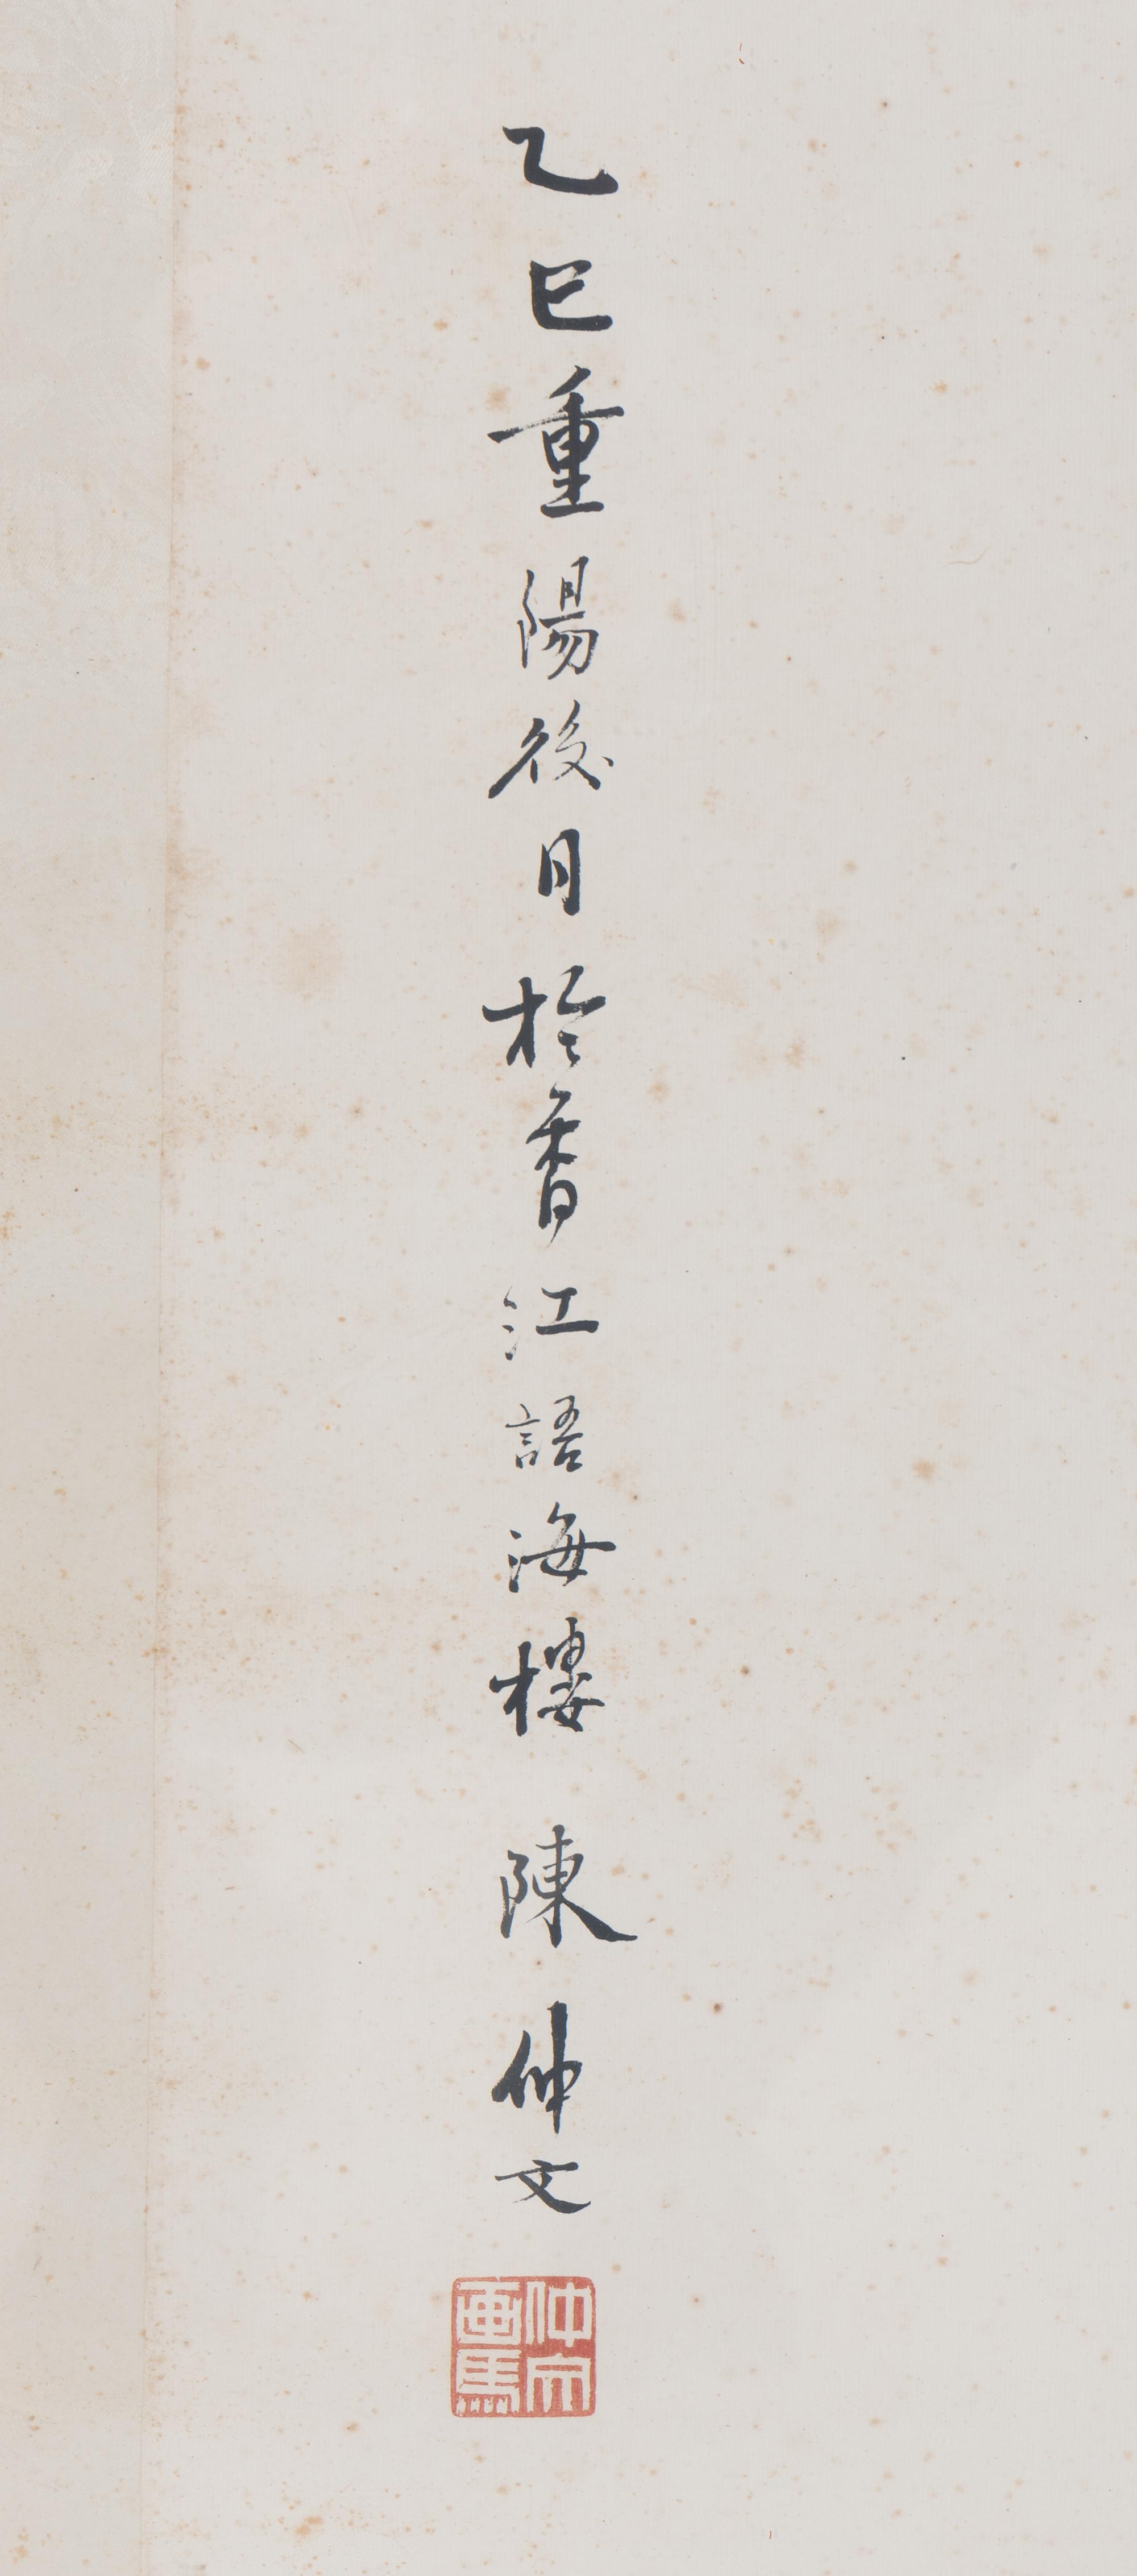 乙巳重陽後日於香江語海樓 陳仲文
仲文
画馬